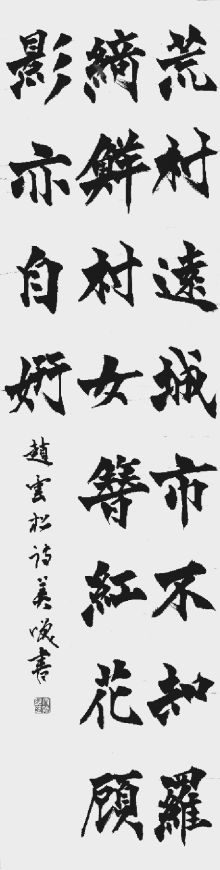 荒村遠城市不知羅
縞鮮村女簪紅花顧
影亦自妍
趙雲松詩美
書